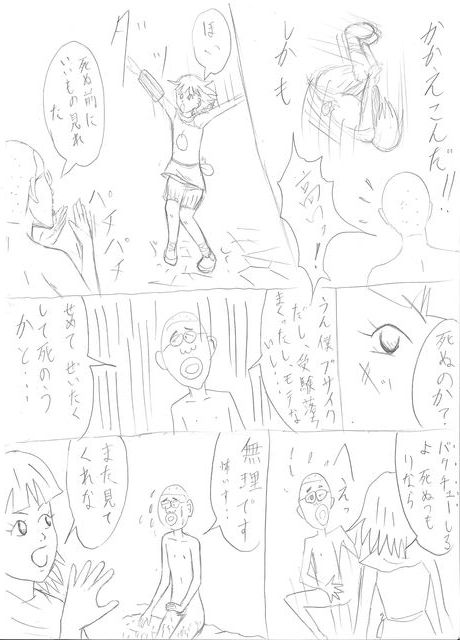 かかえこんだ!!
しかも
高いっ!!
ほい
ダ
死ぬ前に
いいもの見れ
た
パチパチ
死ぬのか?
うん僕ブサイク
だし、受験落
まくったし、モテな
いし…
せめてぜいたく
して死のう
かと…
バクチューしろ
よ死ぬつも
りなら
へぇっ
無理です
怖いす!
また見て
くれな